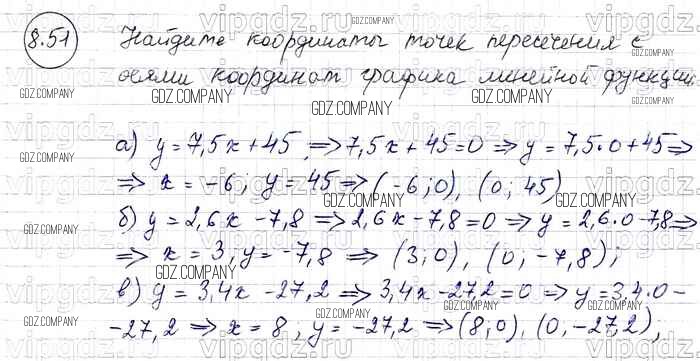 8.51 Найдите координаты точек пересечения с
осями координат графика линейной функции
GDZ.COMPANY
а) y = 7,5x + 45, ⟹ 7,5x + 45 = 0 ⟹ y = 7,5·0 + 45 ⟹
⟹ x = -6; y = 45 ⟹ (-6; 0), (0; 45)
б) y = 2,6x - 7,8 ⟹ 2,6x - 7,8 = 0 ⟹ y = 2,6·0 - 7,8 ⟹
⟹ x = 3, y = -7,8 ⟹ (3; 0), (0; -7,8);
в) y = 3,4x - 27,2 ⟹ 3,4x - 27,2 = 0 ⟹ y = 3,4·0 -
-27,2 ⟹ x = 8, y = -27,2 ⟹ (8; 0), (0, -27,2);
vipgdz.com